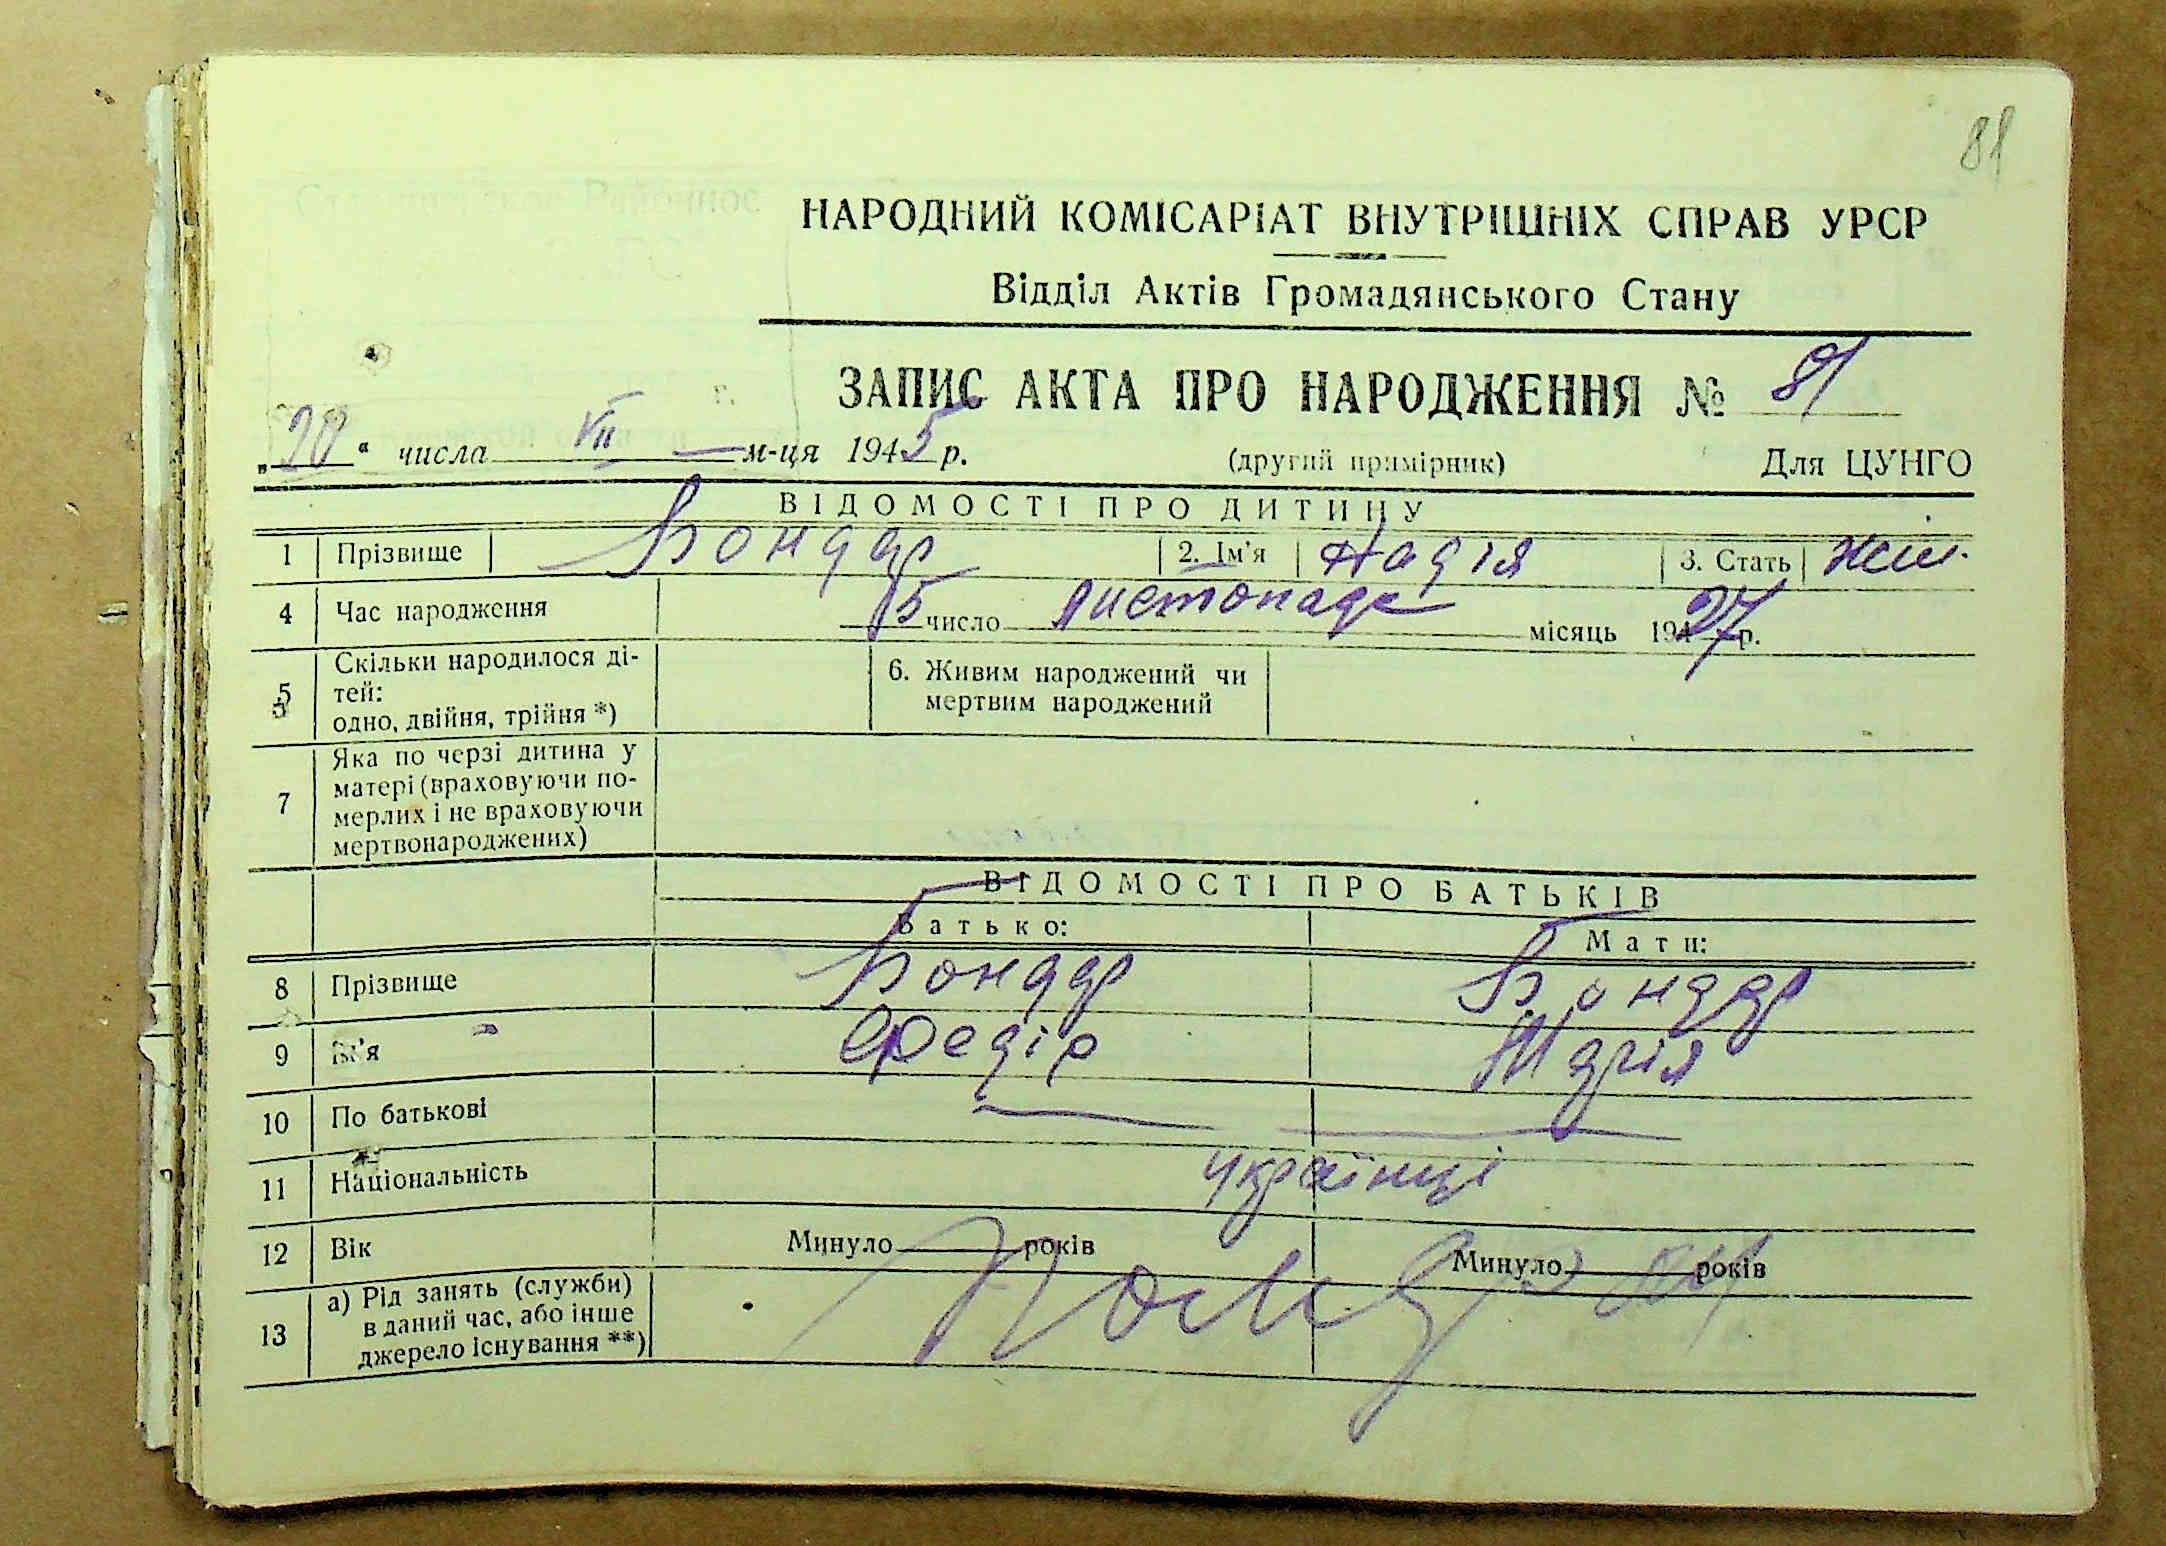 81
НАРОДНИЙ КОМІСАРІАТ ВНУТРІШНІХ СПРАВ УРСР
Відділ Актів Громадянського Стану
ЗАПИС АКТА ПРО НАРОДЖЕННЯ № 81
„20“ числа VII м-ця 1945 р. (другий примірник) Для ЦУНГО
ВІДОМОСТІ ПРО ДИТИНУ
1 Прізвище Бондар 2. Ім'я Надія 3. Стать жін.
4 Час народження 15 число листопада місяць 1927 р.
5 Скільки народилося ді-
тей:
одно, двійня, трійня *)
6. Живим народжений чи
мертвим народжений
7 Яка по черзі дитина у
матері (враховуючи по-
мерлих і не враховуючи
мертвонароджених)
ВІДОМОСТІ ПРО БАТЬКІВ
Батько: Мати:
8 Прізвище Бондар Бондар
9 Ім'я Федір Марія
10 По батькові
11 Національність українці
12 Вік Минуло років Минуло років
13 а) Рід занять (служби)
в даний час, або інше
джерело існування **)